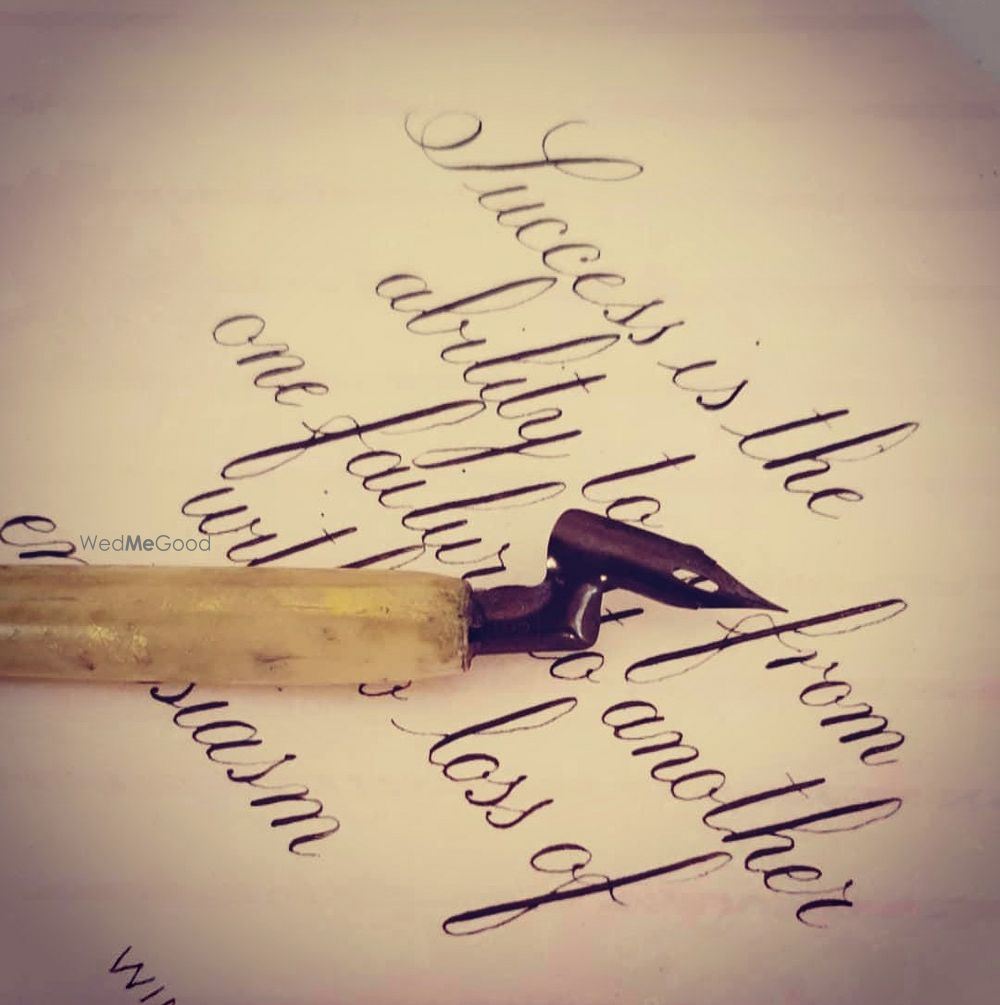 Success is the
ability to from
one failure to another
with loss of
en siasm
WedMeGood